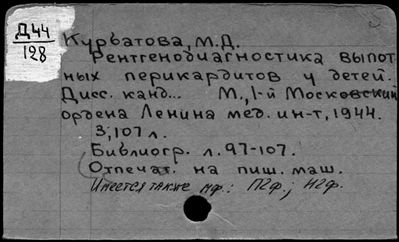 Д44
128
Курбатова, М.Д.
Рентгенодиагностика выпот-
ных перикардитов у детей.
Дисс. канд... М., 1-й Московский
ордена Ленина мед. ин-т, 1944.
3, 107 л.
Библиогр. л. 97-107.
(Отпечат. на пиш. маш.
Имеется также мф.: П2ф.; Н2ф.